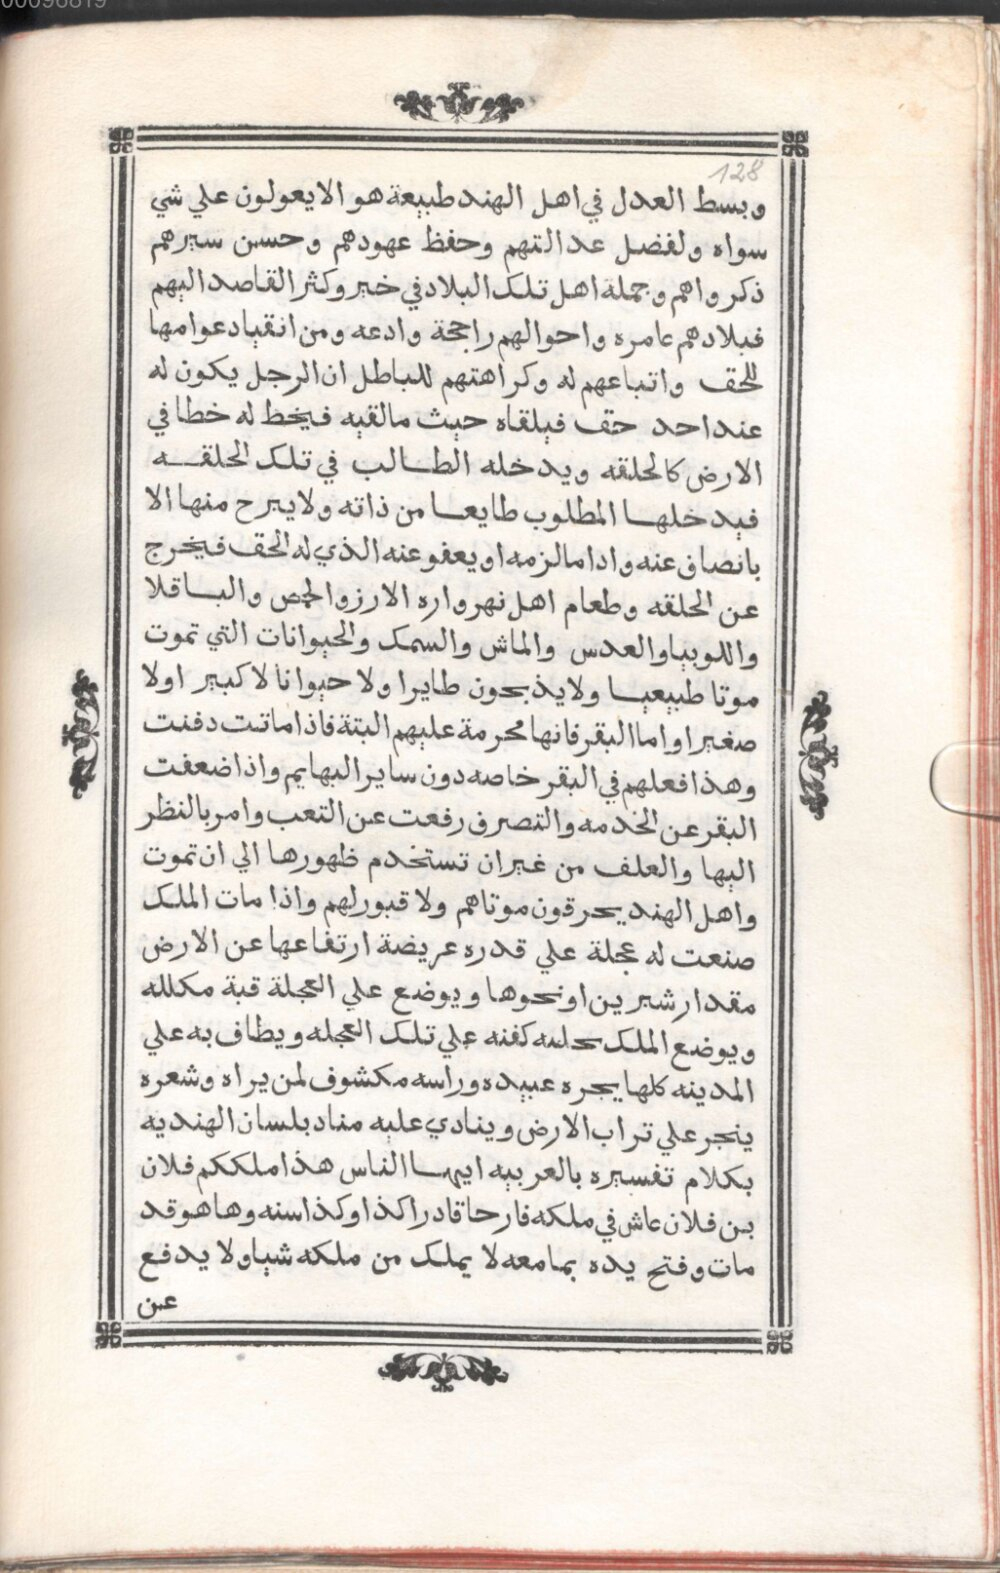 00096819
128
وبسط العدل في اهل الهند طبيعة هو الا يعولون علي شي
سواه ولفضل عدالتهم وحفظ عهودهم وحسن سيرهم
ذكر واهم وجملة اهل تلك البلاد في خير وكثر القاصد اليهم
فبلادهم عامره واحوالهم راجحة وادعه ومن انقياد عوامها
للحق واتباعهم له وكراهتهم للباطل ان الرجل يكون له
عند احد حق فيلقاه حيث مالقيه فيخط له خطا في
الارض كالحلقه ويدخله الطالب في تلك الحلقه
فيدخلها المطلوب طايعا من ذاته ولا يبرح منها الا
بانصاف عنه وادا مالزمه او يعفو عنه الذي له الحق فيخرج
عن الحلقه وطعام اهل نهرواره الارز والحمص والباقلا
واللوبيا والعدس والماش والسمك والحيوانات التي تموت
موتا طبيعيا ولا يذبحون طايرا ولا حيوانا لا كبير اولا
صغيرا واما البقر فانها محرمة عليهم البتة فاذا ماتت دفنت
وهذا فعلهم في البقر خاصه دون ساير البهايم واذا ضعفت
البقر عن الخدمه والتصرف رفعت عن التعب وامر بالنظر
اليها والعلف من غير ان تستخدم ظهورها الي ان تموت
واهل الهند يحرقون موتاهم ولا قبور لهم واذا مات الملك
صنعت له عجلة علي قدره عريضة ارتفاعها عن الارض
مقدار شبرين او نحوها ويوضع علي العجلة قبة مكلله
ويوضع الملك بحليه كفنه علي تلك العجله ويطاف به علي
المدينه كلها يجره عبيده وراسه مكشوف لمن يراه وشعره
ينجر علي تراب الارض وينادي عليه مناد بلسان الهنديه
بكلام تفسيره بالعربيه ايها الناس هذا ملككم فلان
بن فلان عاش في ملكه فارحا قادرا كذا وكذا سنه وها هو قد
مات وفتح يده بما معه لا يملك من ملكه شيا ولا يدفع
عن